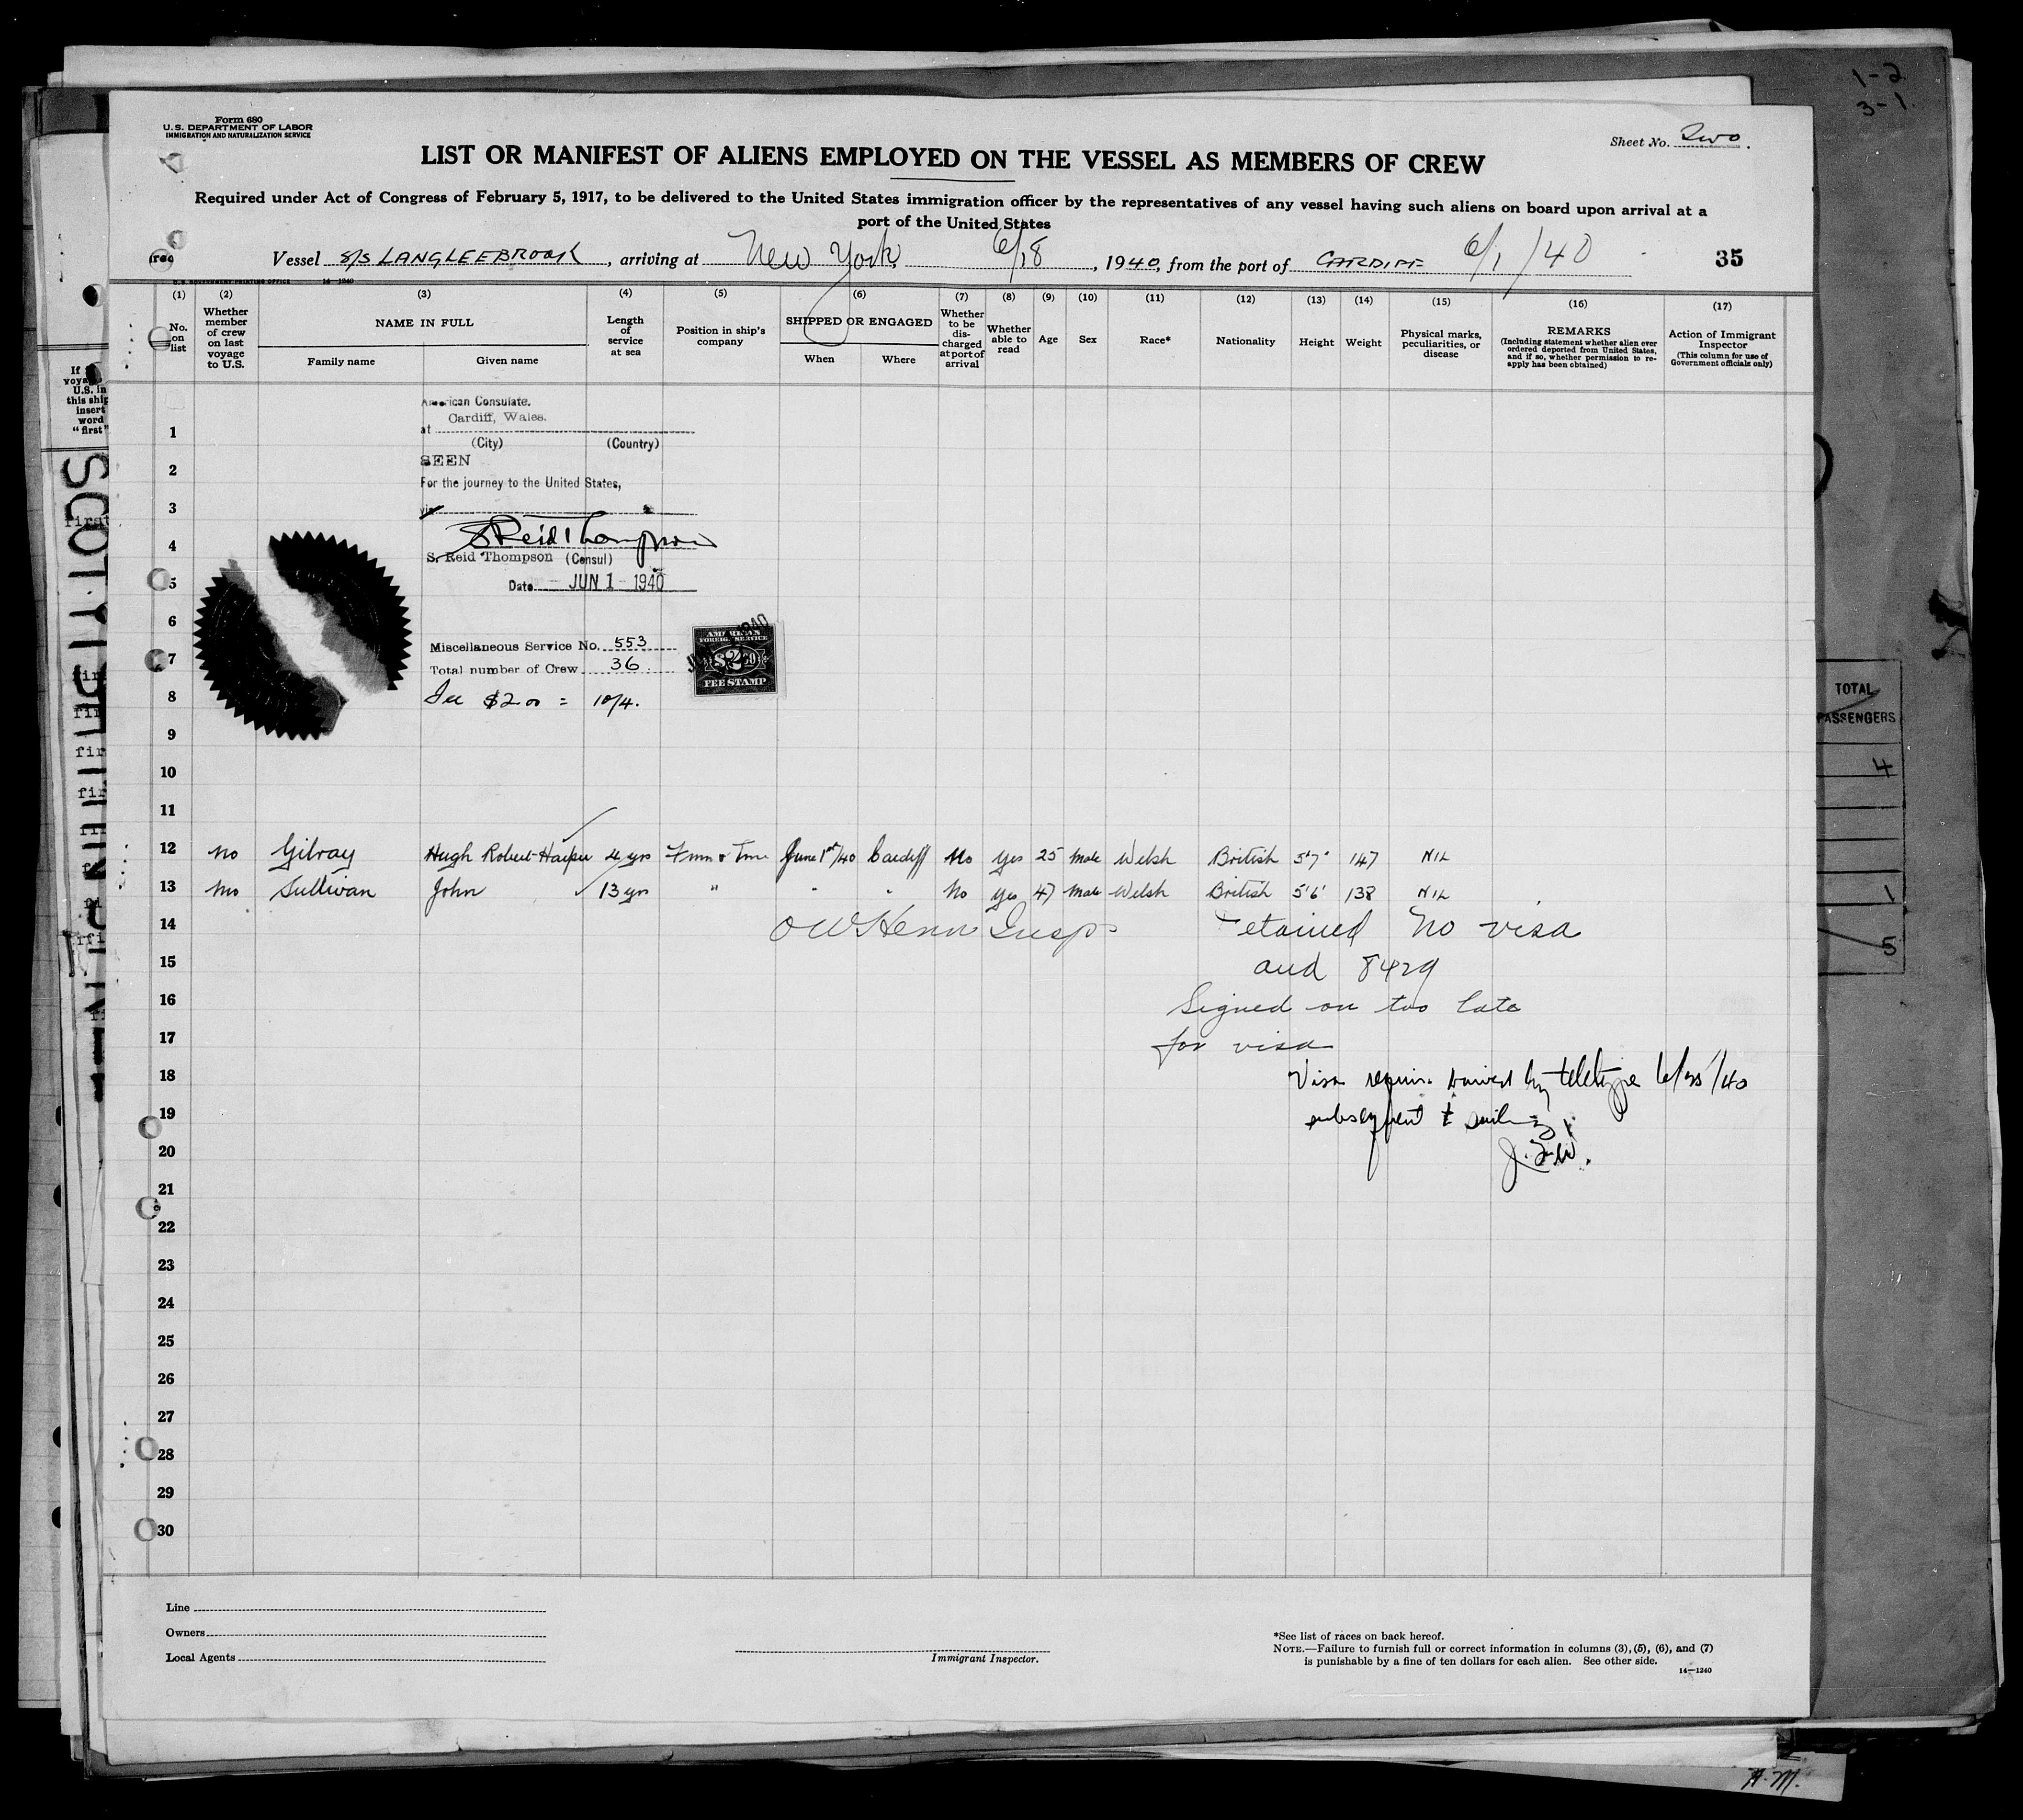 1-2
3-1.
Form 680
U.S. DEPARTMENT OF LABOR
IMMIGRATION AND NATURALIZATION SERVICE
Sheet No. Two.
LIST OR MANIFEST OF ALIENS EMPLOYED ON THE VESSEL AS MEMBERS OF CREW
Required under Act of Congress of February 5, 1917, to be delivered to the United States immigration officer by the representatives of any vessel having such aliens on board upon arrival at a
port of the United States
Vessel S/S LANGLEEBROOK, arriving at New York 6/18, 1940, from the port of CARDIFF 6/1/40 35
U.S. GOVERNMENT PRINTING OFFICE 14—1240
(1) (2) (3) (4) (5) (6) (7) (8) (9) (10) (11) (12) (13) (14) (15) (16) (17)
No. on list
Whether member of crew on last voyage to U.S.
NAME IN FULL
Family name Given name
Length of service at sea
Position in ship's company
SHIPPED OR ENGAGED
When Where
Whether to be discharged at port of arrival
Whether able to read
Age
Sex
Race*
Nationality
Height
Weight
Physical marks, peculiarities, or disease
REMARKS
(Including statement whether alien ever ordered deported from United States, and if so, whether permission to reapply has been obtained)
Action of Immigrant Inspector
(This column for use of Government officials only)
If
voya
U.S. in
this ship
insert
word
"first"
American Consulate.
Cardiff, Wales.
1 at
(City) (Country)
2 SEEN
For the journey to the United States,
3 via
4 S Reid Thompson
S. Reid Thompson (Consul)
5 Date JUN 1 - 1940
6
Miscellaneous Service No. 553
7 Total number of Crew 36
AMERICAN
FOREIGN SERVICE
$2.00
FEE STAMP
8 Fee $2.00 = 10/4.
9
10
11
12 No Gilray Hugh Robert-Harper 4 yrs Fmn & Tmr June 1st/40 Cardiff No yes 25 Male Welsh British 5'7" 147 NIL
13 No Sullivan John 13 yrs " " " No yes 47 Male Welsh British 5'6" 138 NIL
14 etained No visa
15 and 8429
16 Signed on too late
17 for visa
18 Visa waived by teletype 6/25/40
19 subsequent to sailing
20
21
22
23
24
25
26
27
28
29
30
Line
Owners
Local Agents
Immigrant Inspector.
*See list of races on back hereof.
NOTE.—Failure to furnish full or correct information in columns (3), (5), (6), and (7)
is punishable by a fine of ten dollars for each alien. See other side.
14—1240
TOTAL
PASSENGERS
4
1
5
A.M.